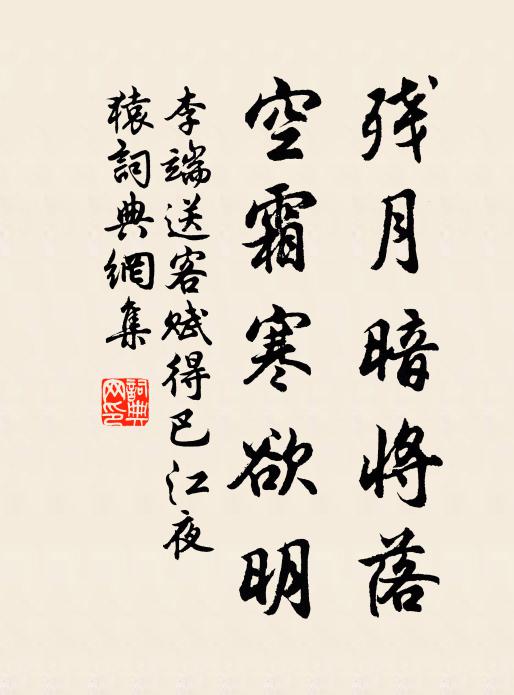 残月暗将落
空霜寒欲明
李端送客赋得巴江夜
猿詞典網集
詞典网印